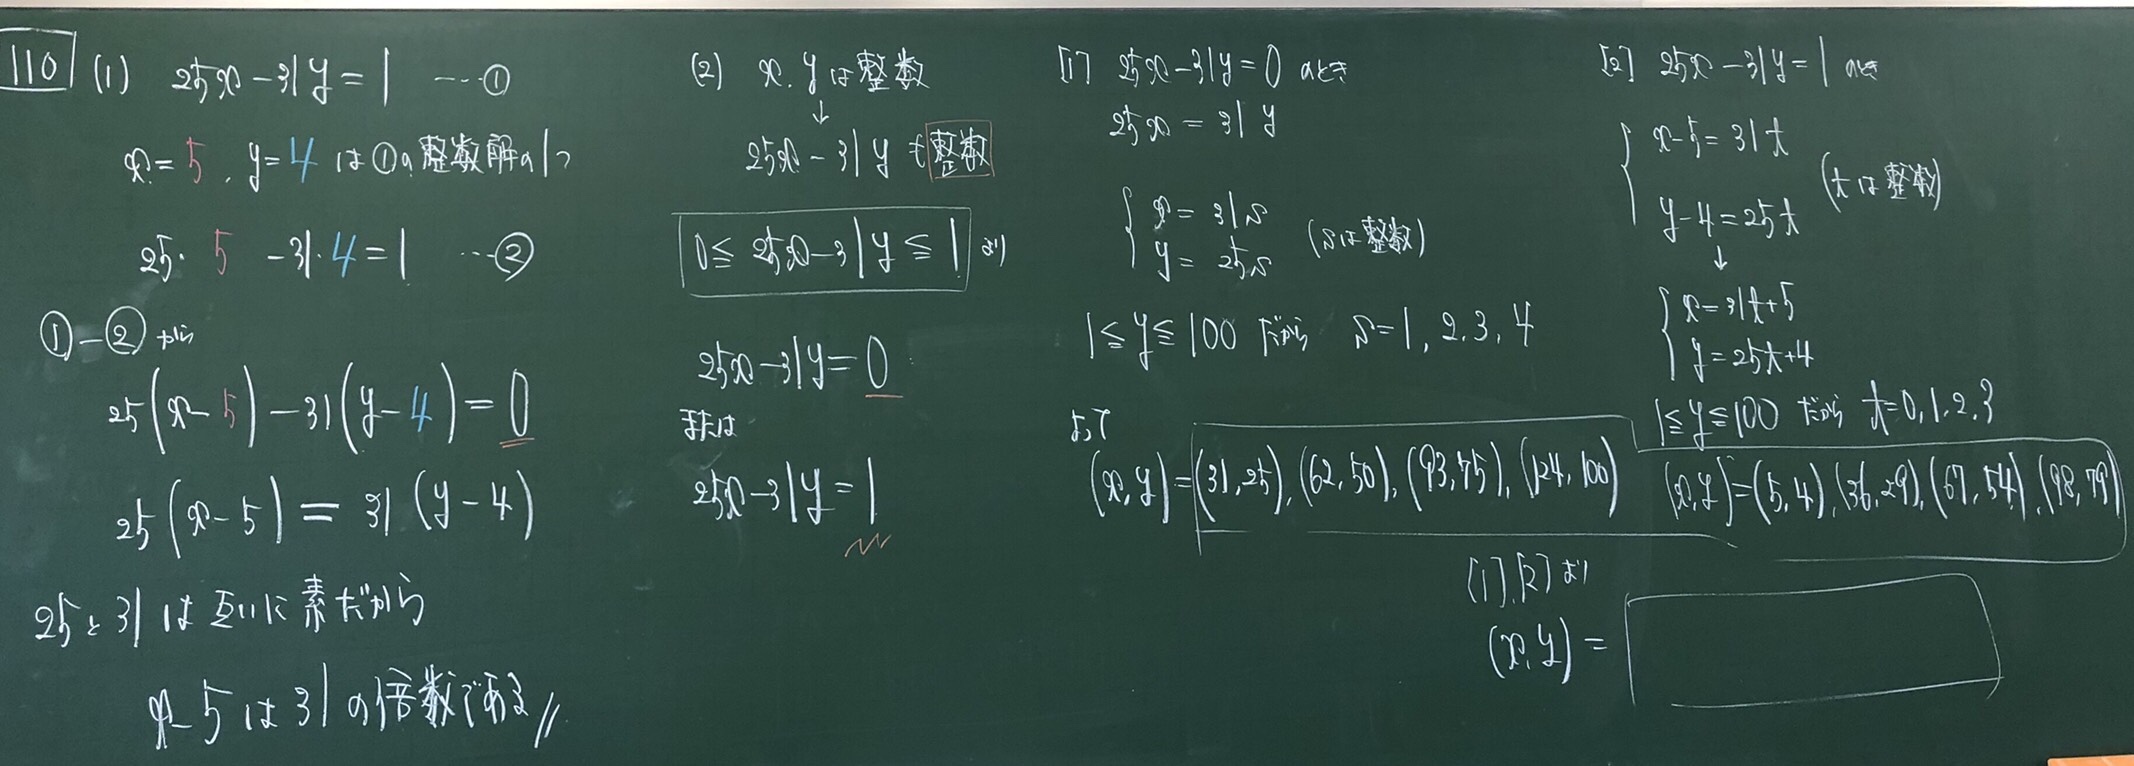 110 (1) 25x-31y=1 …①
x=5, y=4 は①の整数解の1つ
25・5 -31・4=1 …②
①-②から
25(x-5)-31(y-4)=0
25(x-5)=31(y-4)
25と31は互いに素だから
x-5は31の倍数である//
(2) x,yは整数
↓
25x-31yも整数
0≦25x-31y≦1 より
25x-31y=0
または
25x-31y=1
[1] 25x-31y=0のとき
25x=31y
{x=31s
y=25s (sは整数)
1≦y≦100 だから s=1,2,3,4
よって
(x,y)=(31,25),(62,50),(93,75),(124,100)
[2] 25x-31y=1のとき
{x-5=31t
y-4=25t (tは整数)
↓
{x=31t+5
y=25t+4
1≦y≦100 だから t=0,1,2,3
(x,y)=(5,4),(36,29),(67,54),(98,79)
[1],[2]より
(x,y)=